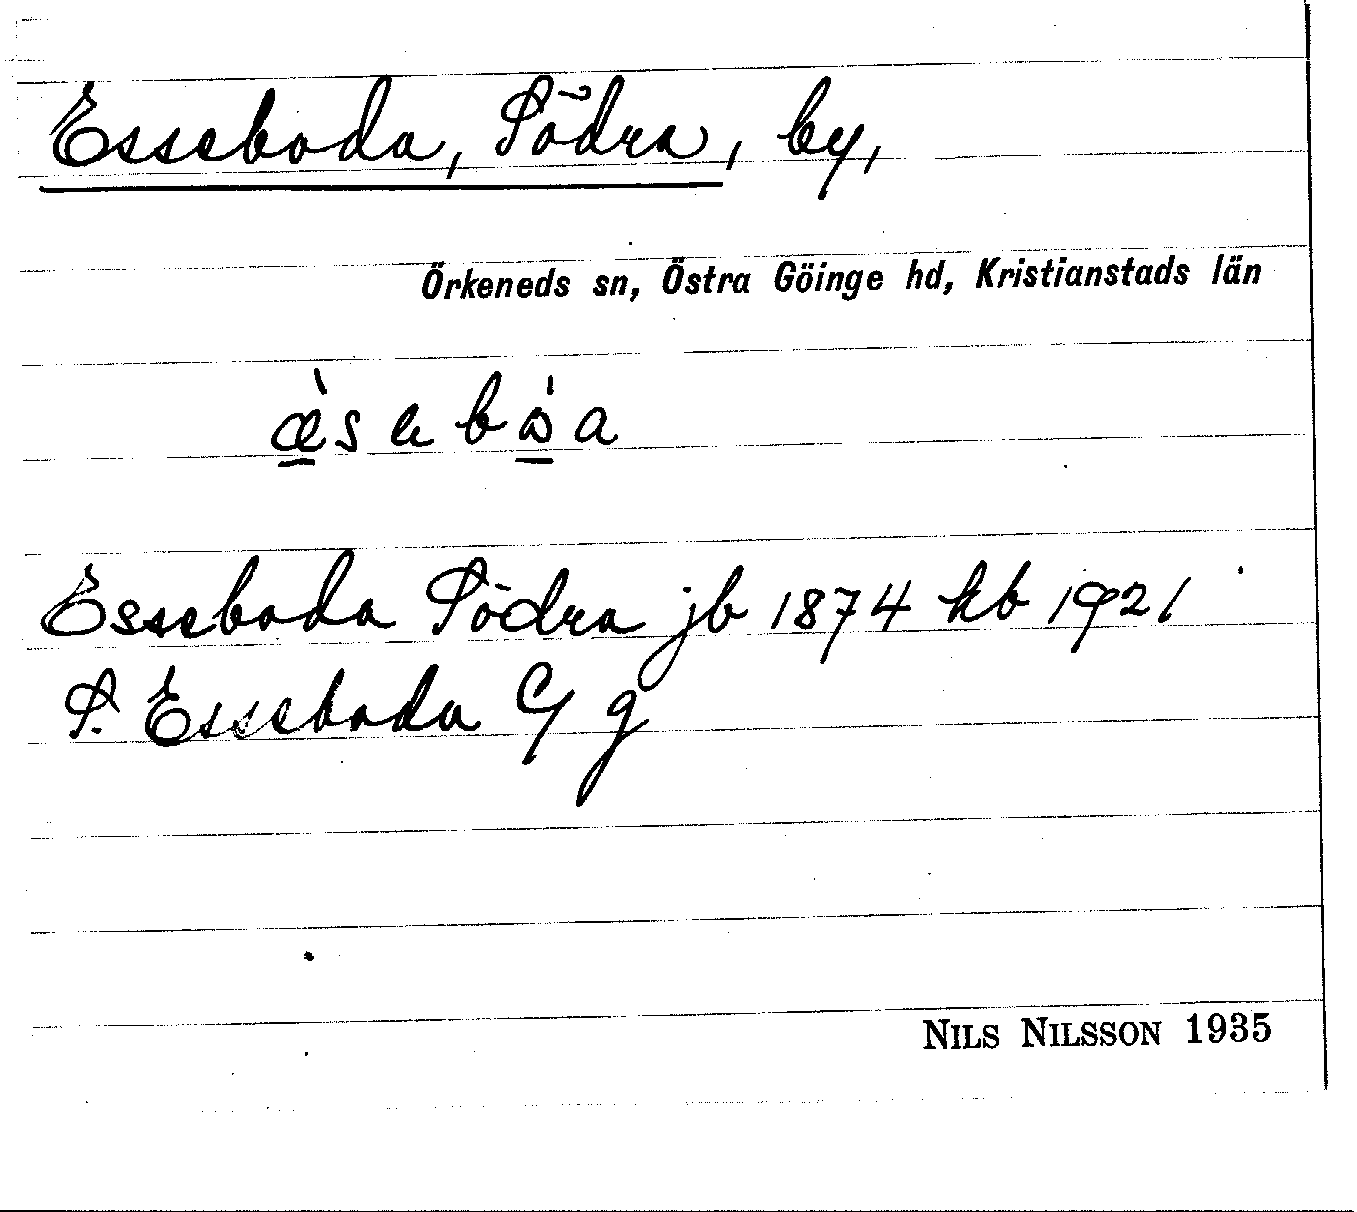 Esseboda, Södra, by,
Örkeneds sn, Östra Göinge hd, Kristianstads län
Esseboda Södra jb 1874 kb 1921
S. Esseboda
NILS NILSSON 1935